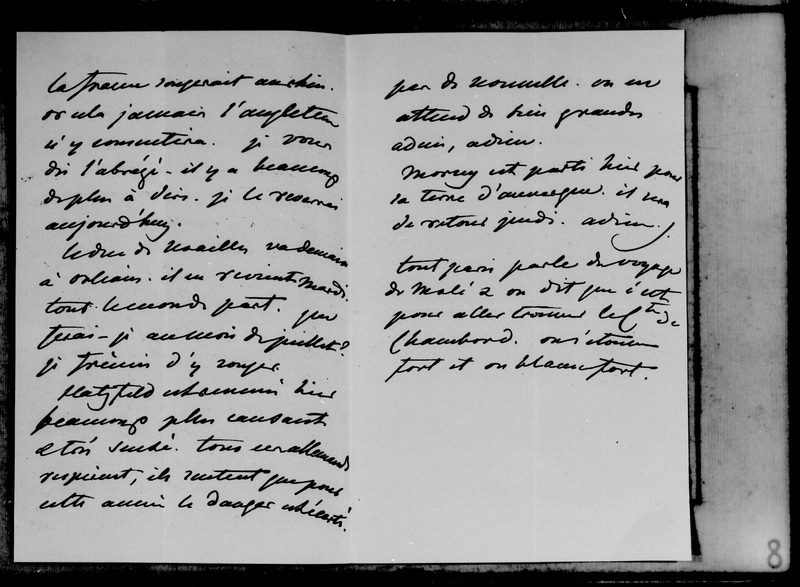 la france songerait au rhin.
or cela jamais l'angleterre
n'y consentira. je vous
dis l'abrégé - il y a beaucoup
de plus à dire. je le reverrai
aujourd'huy.
le duc de Noailles va demain
à orléans. il en revient Mardi.
tout le monde part. que
ferai-je au mois de juillet?
je frémis d'y songer
Hatzfeld est venu hier
beaucoup plus causant
tous ces allemands
respirent, ils sentent que pour
cette année le danger est écarté.
pas de nouvelle. on en
attend de bien grandes
adieu, adieu.
Morny est parti hier pour
sa terre d'auvergne. il sera
de retour jeudi. adieu.
tout paris parle du voyage
de Molé & on dit que c'est
pour aller trouver le Cte de
Chambord. on s'étonne
fort et on blame fort.
8